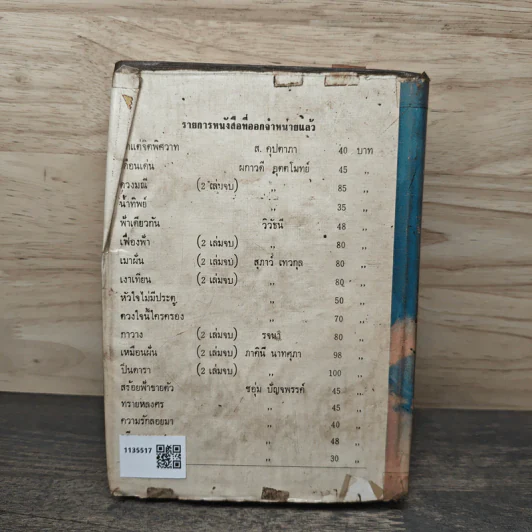 รายการหนังสือที่ออกจำหน่ายแล้ว
ส. คุปตาภา 40 บาท
ผกาวดี อุตตโมทย์ 45 ,,
ดวงมณี (2 เล่มจบ) ,, 85 ,,
น้ำทิพย์ ,, 35 ,,
ฟ้าเดียวกัน วิวัชนี 48 ,,
เฟื่องฟ้า (2 เล่มจบ) ,, 80 ,,
เมาฝัน (2 เล่มจบ) สุภาว์ เทวกุล 80 ,,
เงาเทียน (2 เล่มจบ) ,, 80 ,,
หัวใจไม่มีประตู ,, 50 ,,
ดวงใจนี้ใครครอง ,, 70 ,,
กาวาง (2 เล่มจบ) รจนงิ 80 ,,
เหมือนฝัน (2 เล่มจบ) ภาคินี นาทศุภา 98 ,,
ปิ่นดารา (2 เล่มจบ) ,, 100 ,,
สร้อยฟ้าขายตัว ชอุ่ม ปัญจพรรค์ 45 ,,
ทรายหลงศร ,, 45 ,,
ความรักลอยมา ,, 40 ,,
,, 48 ,,
,, 30 ,,
1135517